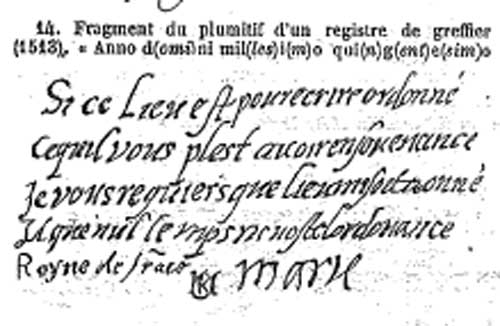 14. Fragment du plumitif d'un registre de greffier
(1513). « Anno d(omi)ni mil(les)i(m)o qui(n)g(ent)e(sim)o
Si ce Lieu est pour ecrire ordonné
Cequil vous plest auoir en souenance
Je vous requiers que lieu mi soit donné
Et que nul temps nen oste lordonance
Royne de france Marie